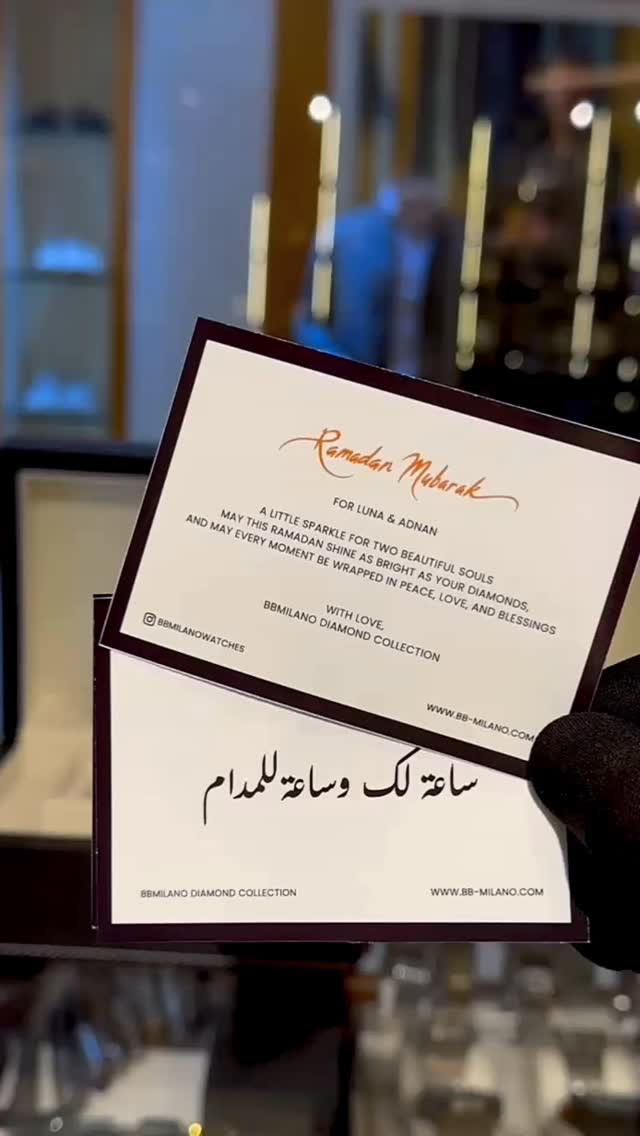 Ramadan Mubarak
FOR LUNA & ADNAN
A LITTLE SPARKLE FOR TWO BEAUTIFUL SOULS
MAY THIS RAMADAN SHINE AS BRIGHT AS YOUR DIAMONDS,
AND MAY EVERY MOMENT BE WRAPPED IN PEACE, LOVE, AND BLESSINGS
WITH LOVE,
BBMILANO DIAMOND COLLECTION
BBMILANOWATCHES
WWW.BB-MILANO.COM
ساعة لك وساعة للمدام
BBMILANO DIAMOND COLLECTION
WWW.BB-MILANO.COM